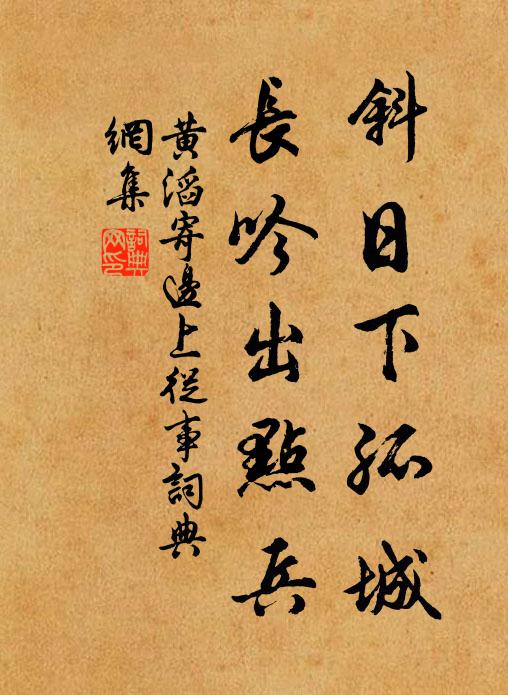 斜日下孤城
長吟出點兵
黃滔寄邊上從事詞典
網集
詞典
網印